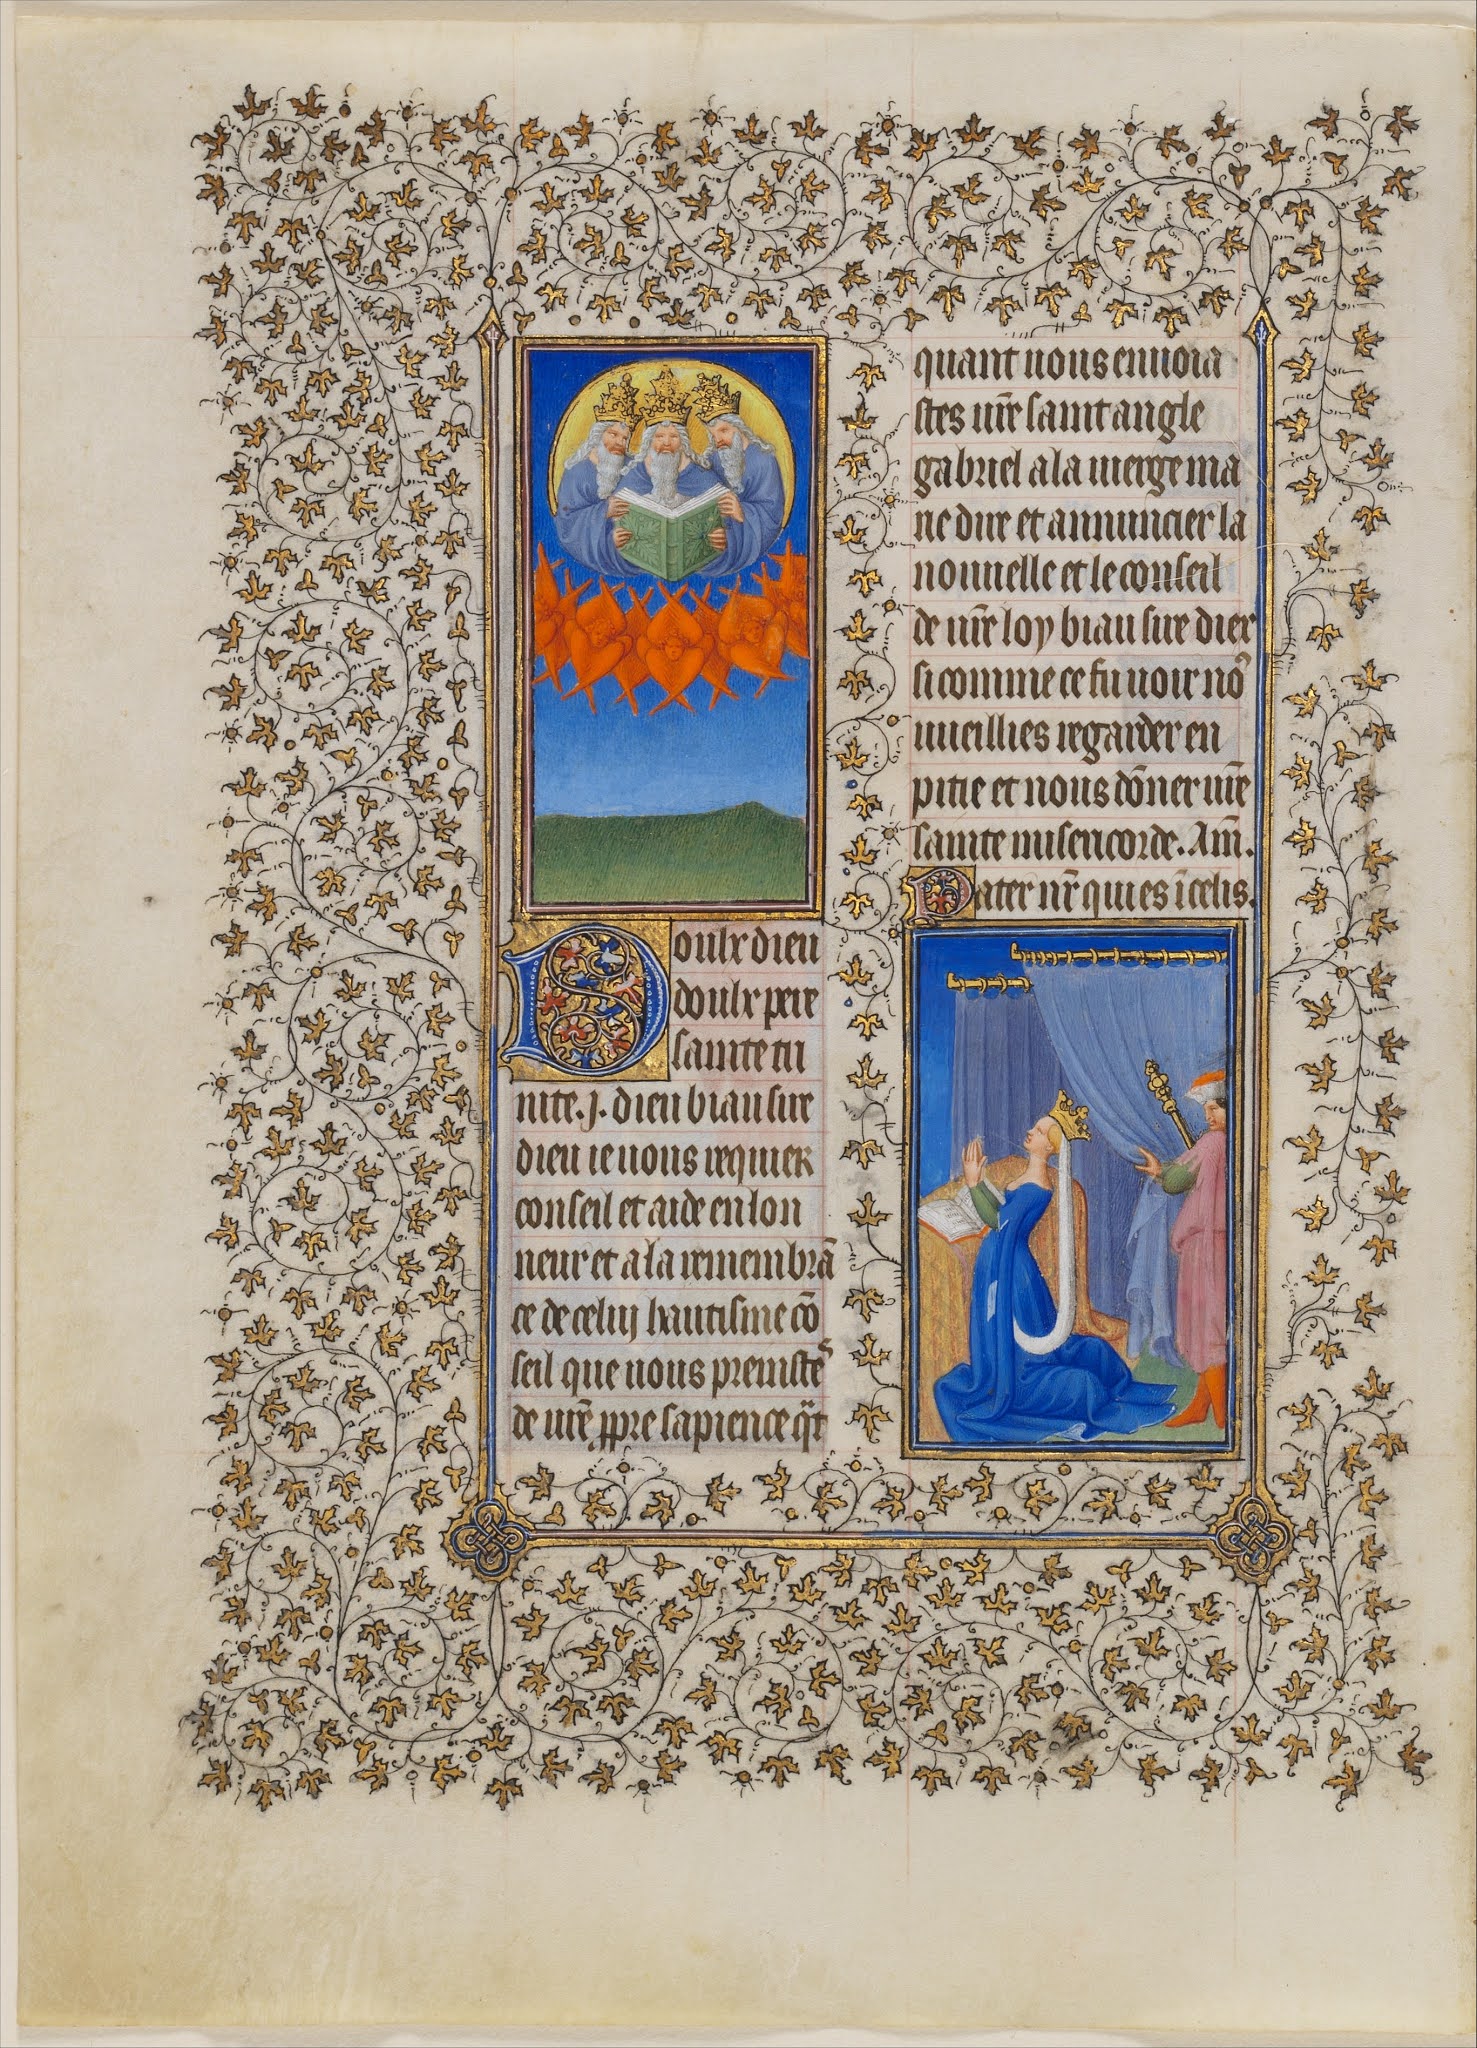 Doulx dieu
doulx pere
sainte tri
nite .j. dieu biau sire
dieu ie vous requier
conseil et aide en lon
neur et a la remembrā
ce de celuy hautisme cō
seil que vous prenistes
de vr̄e ppre sapience q̄t
quant vous enuoia
stes vr̄e saint angle
gabriel a la vierge ma
rie dire et annuncier la
nouuelle et le conseil
de vr̄e loy biau sire diex
si comme ce fu voir no9
vueillies regarder en
pitie et nous dōner vr̄e
sainte misericorde. Am̄.
Pater nr̄ qui es ī celis.